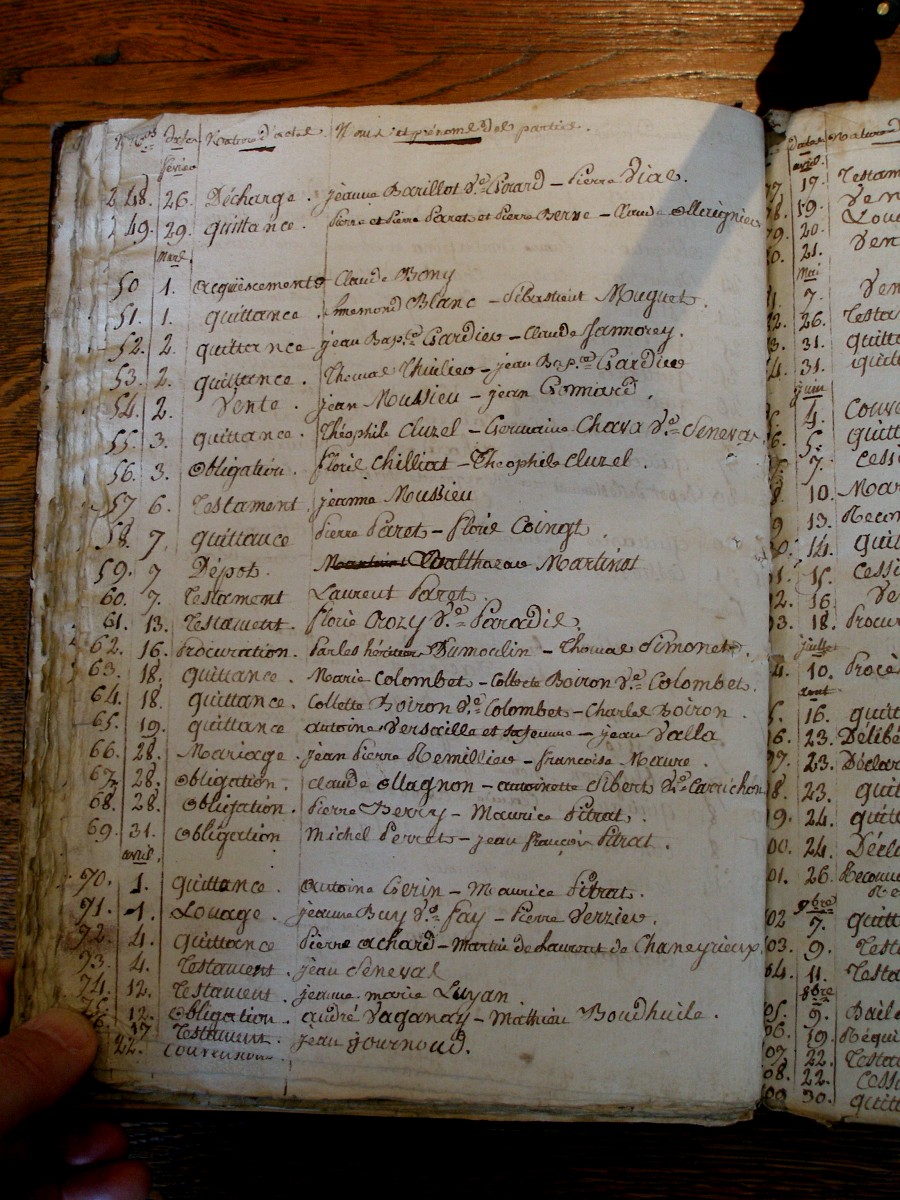 Nos Dates Nature D'actes Noms et prénoms Des parties.
février
248. 26. Décharge. jeanne Barillot Ve. Girard – Pierre Vial.
249. 29. quittance. Pierre et Pierre Paret et Pierre Berne – Claude
Mars.
50 1. acquiescement Claude Bony
51. 1. quittance. Blanc – Sébastient Muguet.
52. 2. quittance jean Bap.te Gardieu – Claude Jamorey.
53. 2. quittance. Thomas Thiulieu – jean Bap.te Gardieu
54. 2. Vente. jean Moussieu – jean Goniard.
55. 3. quittance. Théophile Cluzel – Germaine Chava Ve.
56. 3. Obligation. florie Chilliat – Theophile Cluzel.
57 6. Testament jeanne Moussieu
58. 7. quittance Pierre Paret – florie Coingt
59. 7 Dépot. Martinot
60. 7. Testament Laurent Paret.
61. 13. Testament. florie Crozy Ve. Paradis.
62. 16. Procuration. Par les héritiers Dumoulin – Thomas Simonet.
63. 18. quittance. Marie Colombet – Collecte Boiron Ve. Colombet.
64. 18. quittance. Collette Boiron Ve. Colombet – Charles Boiron.
65. 19. quittance antoine Versaille et sa femme – jean Valla
66. 28. Mariage. jean Pierre Remillieu – francoise Maure.
67. 28. Obligation. Claude Ollagnon – antoinette Sibert Ve. Carrichon
68. 28. Obligation. Pierre Berry – Maurice Pitrat.
69. 31. Obligation Michel Perret – jean françois Pitrat.
avril.
70. 1. quittance. Antoine Gerin – Maurice Pitrat.
71. 1. Louage. jeanne Buy Ve. fay – Pierre Verzieu.
72. 4. quittance Pierre Achard – Martin de Laurent de Chaneyrieux
73. 4. Testament. jean Seneval
74. 12. Testament. jeanne marie Luyan.
75. 12. Obligation. andré Vaganay – Mathieu Boudhuile.
76. 17 Testament. jean journoud.
22.
Dates Nature D
avril.
77. 17. Testam
78. 19. Ven
79. 20. Loua
80. 21. Ven
Mai
7. Ven
82. 26. Testa
83. 31. quitt
84. 31. quitt
juin
4. Conv
5. quitt
7. Cess
10. Mar
13. Recon
14. quit
15. Cessi
2. 16 Ve
3. 18. Procur
juillet
4. 10. Procè
aout
5. 16. quitt
6. 23. Délibé
97. 23. Déclar
8. 23. quit
9. 24. quitt
00. 24. Décla
01. 26. Reconn
7bre
02 7. quitt
03. 9. Testa
04. 11. Testa
8bre
05. 9. Bail
06. 19. Réqui
07. 22. Testa
08. 22. Cess
30. quitt